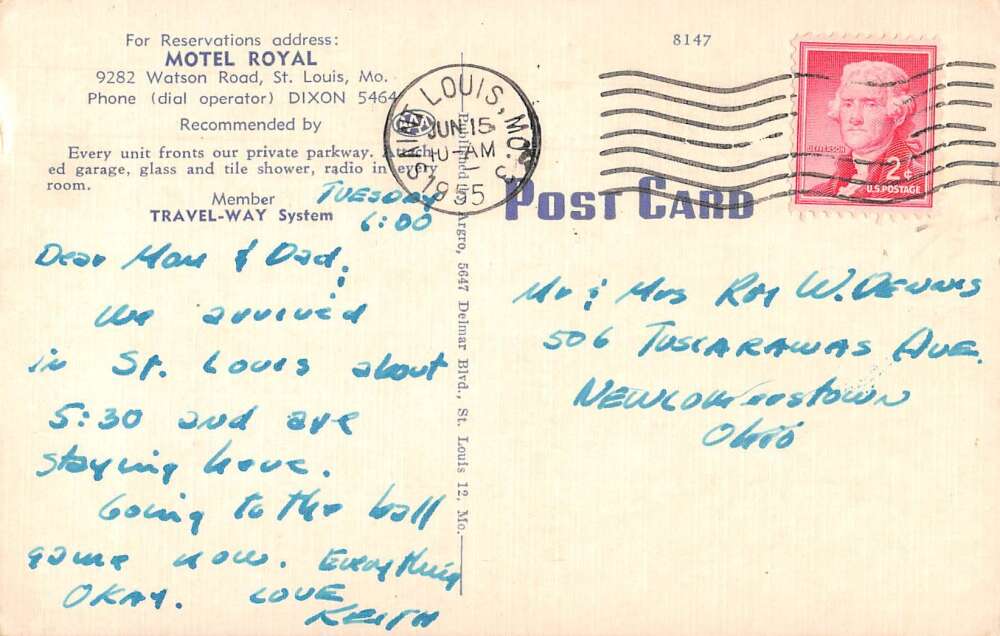 For Reservations address:
MOTEL ROYAL
9282 Watson Road, St. Louis, Mo.
Phone (dial operator) DIXON 5464
Recommended by
Every unit fronts our private parkway. Attach
ed garage, glass and tile shower, radio in every
room.
Member
TRAVEL-WAY System
8147
SAINT LOUIS, MO. 3
JUN 15
10 - AM
1955
JEFFERSON
2¢
U.S. POSTAGE
POST CARD
Argro, 5647 Delmar Blvd., St. Louis 12, Mo.
TUESDAY
6:00
Dear Mom & Dad,
We arrived
in St. Louis about
5:30 and are
staying here.
Going to the ball
game now. Everything
OKAY. LOVE
KEITH
Mr & Mrs Roy W. DENNIS
506 TUSCARAWAS AVE.
NEWCOMERSTOWN
OHIO